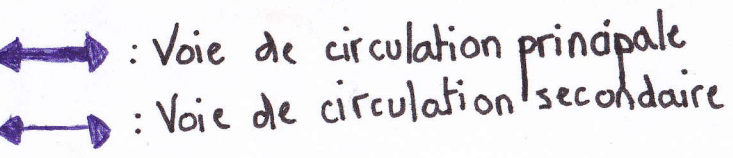 : Voie de circulation principale
: Voie de circulation secondaire